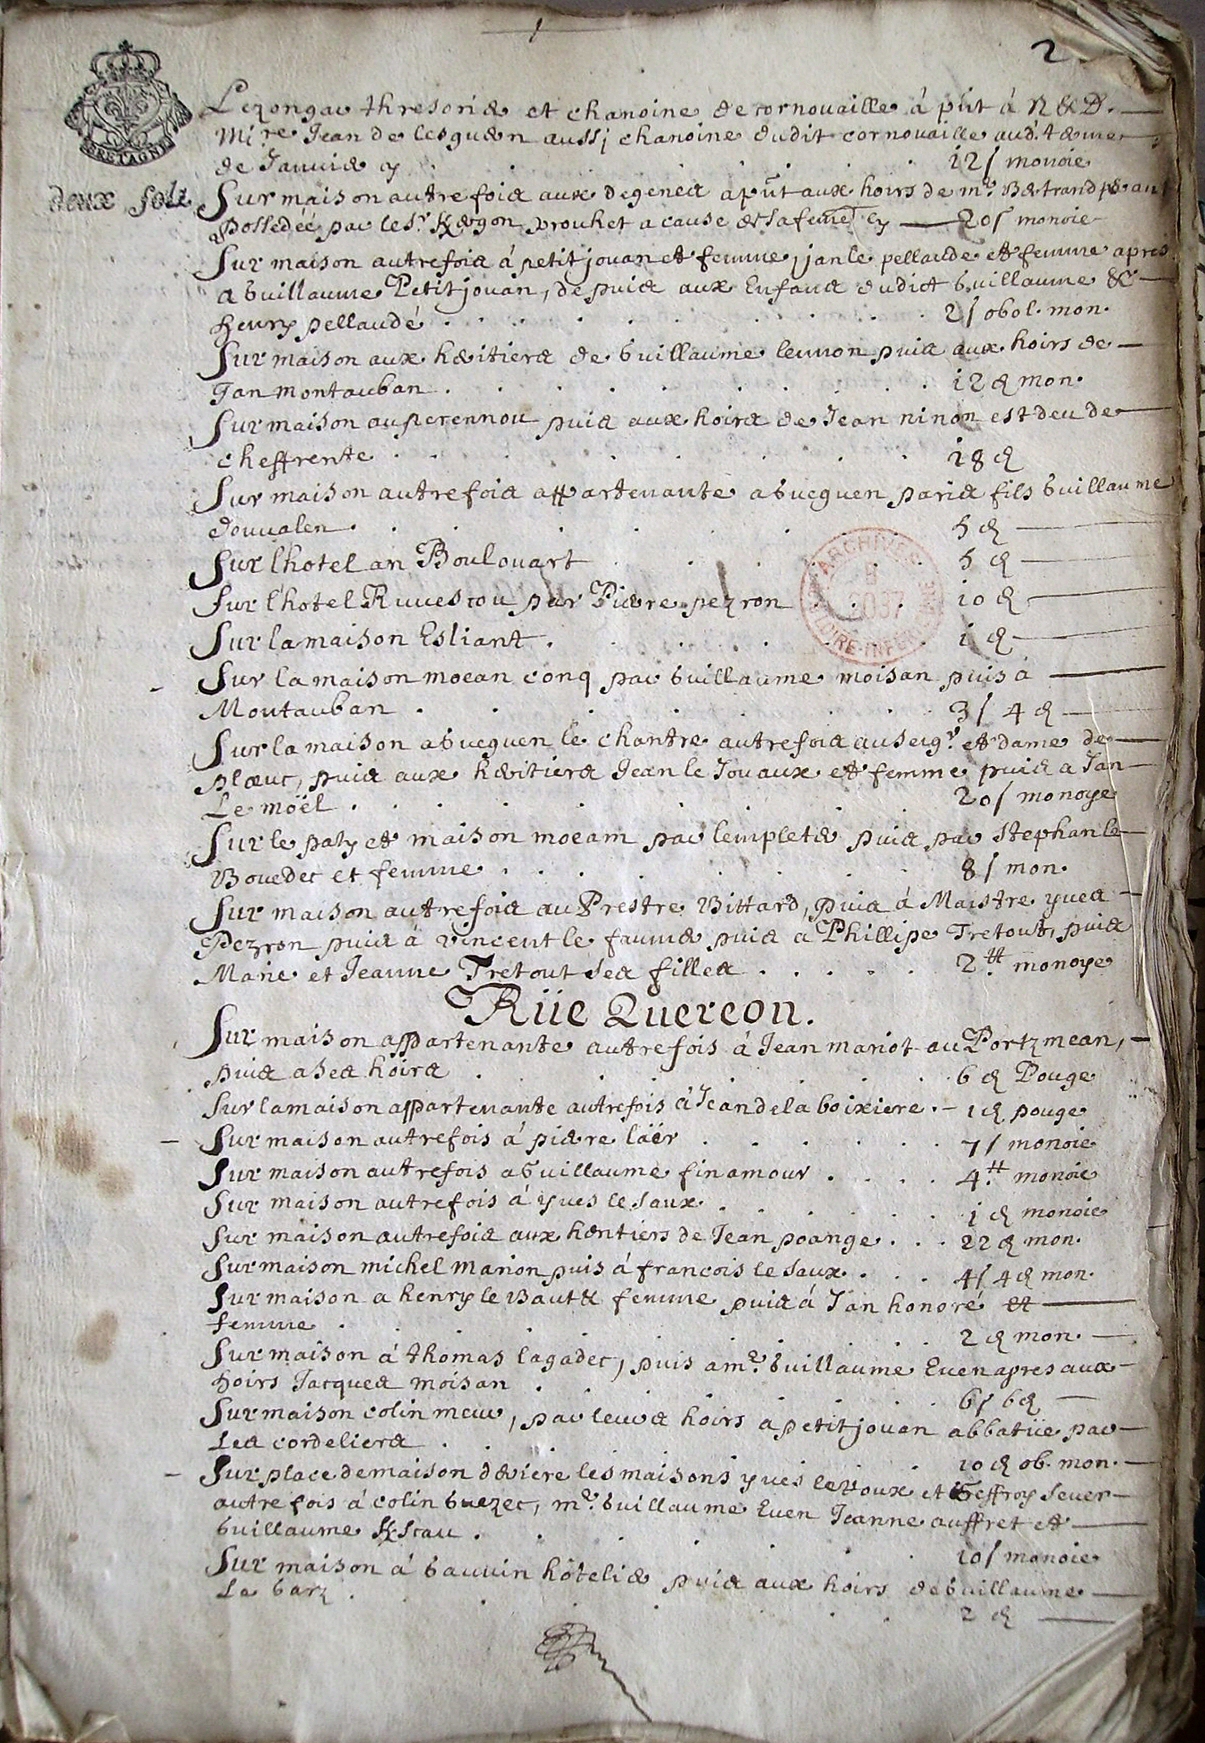 1
2
BRETAGNE
deux solz
Lezongar thresorier et chanoine de cornouaille á pñt á N & D.
Mi.re Jean de lesguern aussj chanoine dudit cornouaille audit
de Janvier cy . . . 12 s monoie
Sur maison autrefois aux degenes a pñt aux hoirs de m.e Bertrand
possedéé par le s.r Kergon Drouhet a cause de sa feme cy 20 s monoie
Sur maison autrefois á petit jouan et femme, jan le pellaude et femme apres
a Guillaume Petit jouan, depuis aux Enfans dudict Guillaume &
henry pellaudé . . . 2 s obol. mon.
Sur maison aux heritiers de Guillaume leumon puis aux hoirs de
Jan montauban . . . 12 d mon.
Sur maison au perennou puis aux hoirs de Jean ninon est deu de
cheffrente . . . 18 d
Sur maison autrefois appartenante a Gueguen paris fils Guillaume
douvalen . . . 5 d
Sur l'hotel an Boulouart . . . 5 d
Sur l'hotel Ruuescou par Pierre pezron . . . 10 d
Sur la maison Esliant . . . 1 d
Sur la maison moean conq par Guillaume moisan puis á
Montauban . . . 3 s 4 d
Sur la maison a Gueguen le chantre autrefois au seig.r et dame de
plœuc, puis aux heritiers Jean le Jouaux et femme puis a Jan
Le möel . . . 20 s monoye
Sur le paty et maison moeam par lemplete puis par Stephan le
Bouedec et femme . . . 8 s mon.
Sur maison autrefois au Prestre Bittard, puis á Maistre yves
Pezron puis á vincent le faune puis a Phillipe Tretout, puis
Marie et Jeanne Tretout ses filles . . . 2 tt monoye
Rüe Quereon.
Sur maison appartenante autrefois á Jean mariot au Portzmean,
puis a ses hoirs . . . 6 d Pouge
Sur la maison appartenante autrefois á Jean de la boixiere . 1 d pouge
Sur maison autrefois á pierre läër . . . 7 s monoie
Sur maison autrefois a Guillaume finamour . . . 4 tt monoie
Sur maison autrefois á yves le saux . . . 1 d monoie
Sur maison autrefois aux heritiers de Jean poange . . . 22 d mon.
Sur maison michel marion puis á francois le saux . . . 4 s 4 d mon.
Sur maison a henry le Baut & femme puis á Jan honoré et
femme . . . 2 d mon.
Sur maison á thomas lagadec, puis a m.e Guillaume Even apres aux
hoirs Jacques moisan . . . 6 s 6 d
Sur maison colin meur, par leurs hoirs a petit jouan abbatüe par
Les cordeliers . . . 10 d ob. mon.
Sur place de maison deriere les maisons yves lerioux et Geffroy sever
autrefois á colin Guezec, m.e Guillaume Even Jeanne auffret et
Guillaume Kscau . . . 10 s monoie
Sur maison á Gauvin hôtelier puis aux hoirs de Guillaume
Le Garz . . . 2 d
ARCHIVES
B
2037
LOIRE-INFERIEURE